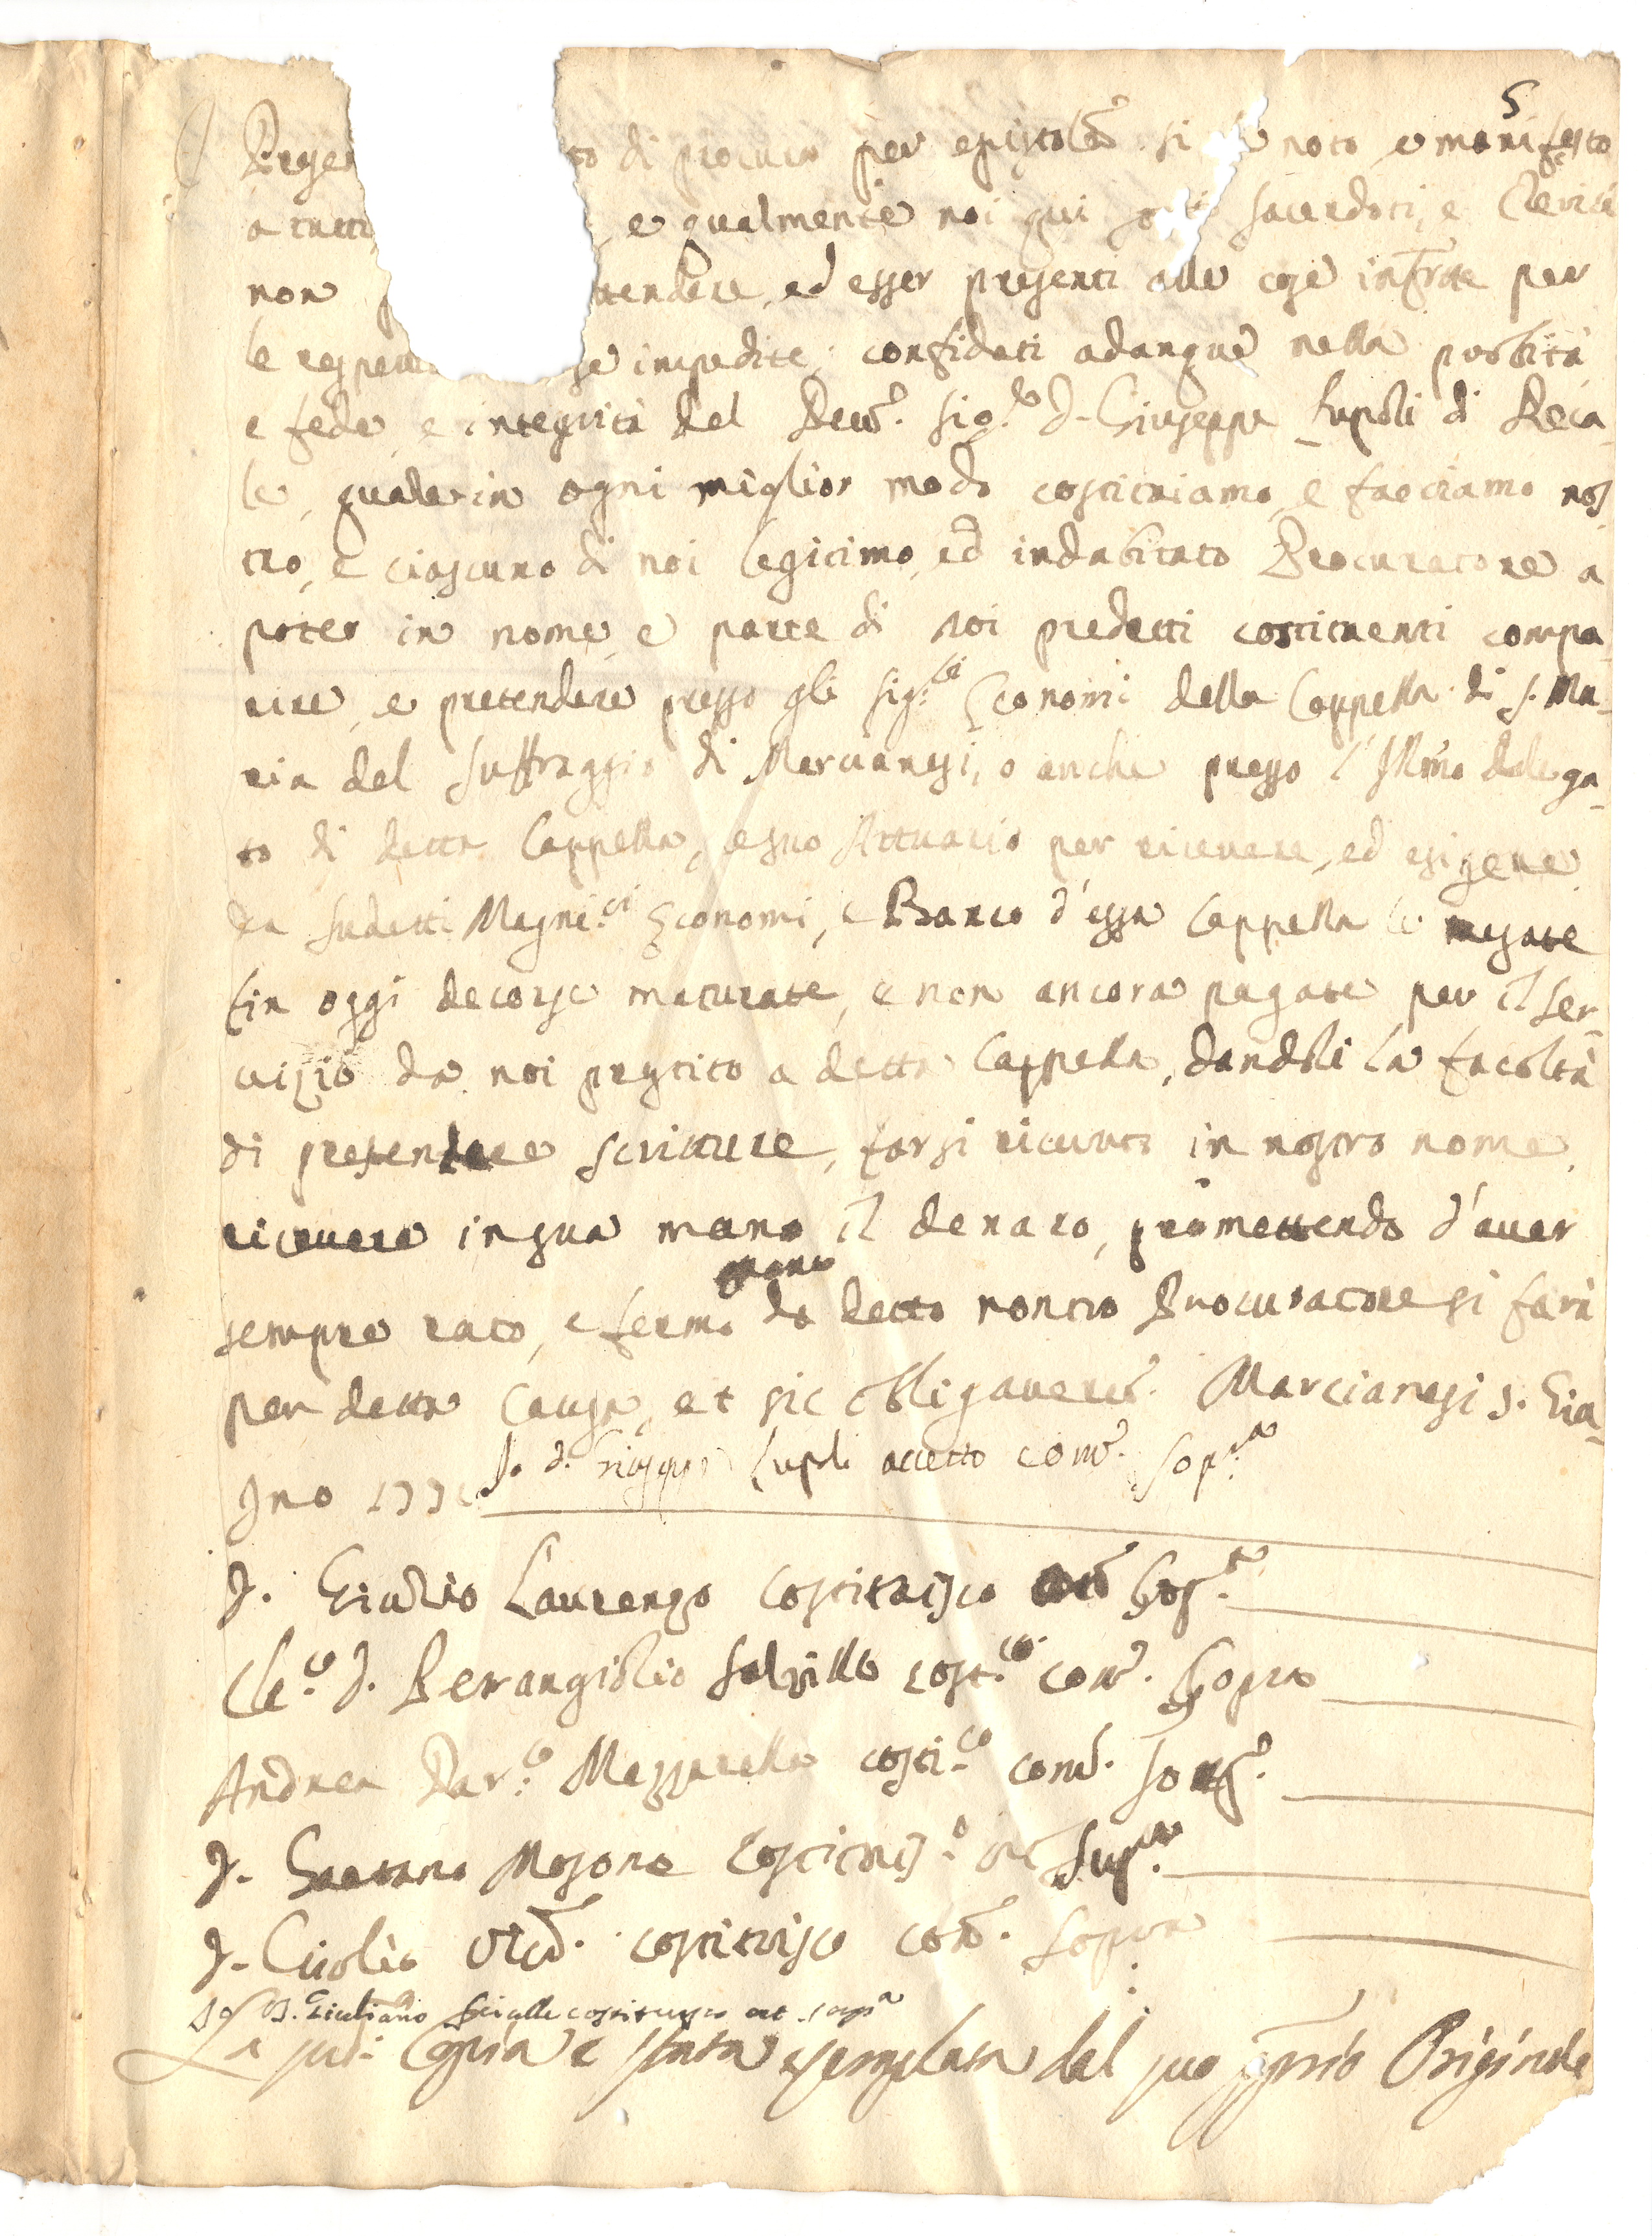 5
Presen to di procura per epistolã si noto e manifesto
a tutti , e qualmente noi qui sacerdoti, e Clerici
non ttendere, ed esser presenti alle cose infratte per
le respetti se impedite; confidati adunque nella probità,
e fede, e integrità del Reuõ. Sig.re D. Giuseppe Lupoli di Reca-
le, quale in ogni miglior modo costituiamo, e facciamo nos-
tro, e ciascuno di noi legitimo, ed indubitato Procuratore a
poter in nome, e parte di noi predetti costituenti compa-
rire, e pretendere presso gli Sig.ri Economi della Cappella di S. Ma-
ria del Suffraggio di Marcianesi, o anche presso l'Illmo delega-
to di detta Cappella, e suo Attuario per ricevere, ed esigere
da sudetti Magni.ci Economi, e Banco d'essa Cappella le mesate
fin oggi decorse maturate, e non ancora pagate per il ser-
vizio da noi prestito a detta Cappella, dandoli la facoltà
di presentare scritture, farsi ricevuto in nostro nome,
ricevere in sua mano il denaro, promettendo d'aver
sempre rato, e fermo da detto nostro Procuratore si farà
per detta causa, et sic obligaverũ. Marcianesi 3. Giu-
gno 177
Io D. Giuseppe Lupoli accetto com̃. sop.ra
D. Giulio Laurenzo costituisco sop.ra
Cle.co D. Berangiolio Salzillo cost.co com̃. sopra
Andrea Par.co Mazzarella costi.co com̃. sop.
D. Gaetano Mosone costituis.o ut sup.ra
D. Giulio costituisco com̃. sopra
D. Giuliano Scialle costituisco ut sop.a
La sud.a Copia è stata esemplata dal suo pprio Originale